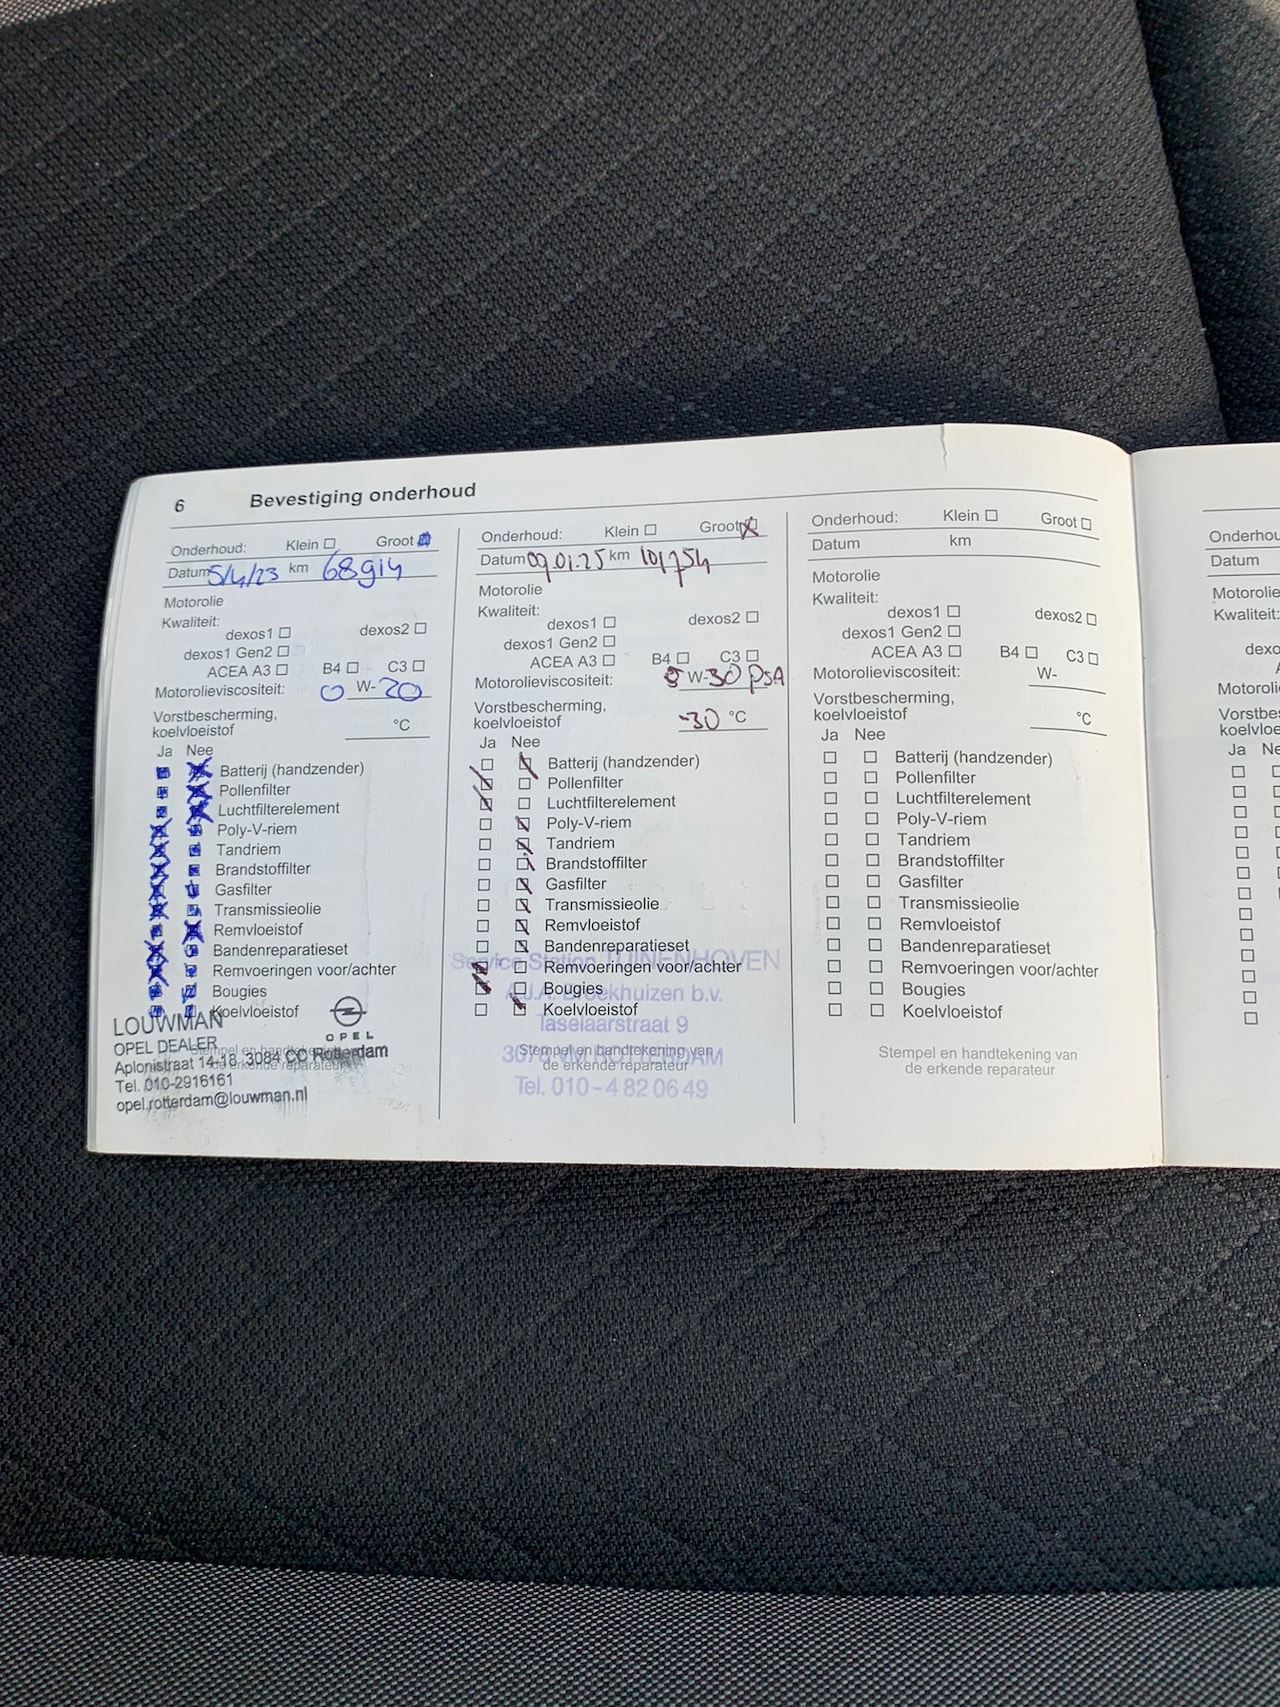 6 Bevestiging onderhoud
Onderhoud: Klein Groot
Datum 5/4/23 km 68914
Motorolie
Kwaliteit:
dexos1 dexos2
dexos1 Gen2
ACEA A3 B4 C3
Motorolieviscositeit: 0 W-20
Vorstbescherming,
koelvloeistof °C
Ja Nee
Batterij (handzender)
Pollenfilter
Luchtfilterelement
Poly-V-riem
Tandriem
Brandstoffilter
Gasfilter
Transmissieolie
Remvloeistof
Bandenreparatieset
Remvoeringen voor/achter
Bougies
Koelvloeistof
LOUWMAN
OPEL DEALER
OPEL
Aplonistraat 14-18, 3084 CC Rotterdam
Tel. 010-2916161
opel.rotterdam@louwman.nl
Stempel en
de erkende reparateur
Onderhoud: Klein Groot
Datum 09.01.25 km 101754
Motorolie
Kwaliteit:
dexos1 dexos2
dexos1 Gen2
ACEA A3 B4 C3
Motorolieviscositeit: W-30 PSA
Vorstbescherming,
koelvloeistof -30 °C
Ja Nee
Batterij (handzender)
Pollenfilter
Luchtfilterelement
Poly-V-riem
Tandriem
Brandstoffilter
Gasfilter
Transmissieolie
Remvloeistof
Bandenreparatieset
Service Station TUINENHOVEN
Remvoeringen voor/achter
Bougies
A.J.A. Broekhuizen b.v.
Koelvloeistof
Taselaarstraat 9
Stempel en handtekening van
3078 ROTTERDAM
de erkende reparateur
Tel. 010 - 4 82 06 49
Onderhoud: Klein Groot
Datum km
Motorolie
Kwaliteit:
dexos1 dexos2
dexos1 Gen2
ACEA A3 B4 C3
Motorolieviscositeit: W-
Vorstbescherming,
koelvloeistof °C
Ja Nee
Batterij (handzender)
Pollenfilter
Luchtfilterelement
Poly-V-riem
Tandriem
Brandstoffilter
Gasfilter
Transmissieolie
Remvloeistof
Bandenreparatieset
Remvoeringen voor/achter
Bougies
Koelvloeistof
Stempel en handtekening van
de erkende reparateur
Onderhou
Datum
Motorolie
Kwaliteit:
dexo
Motoroli
Vorstbes
koelvloe
Ja Ne